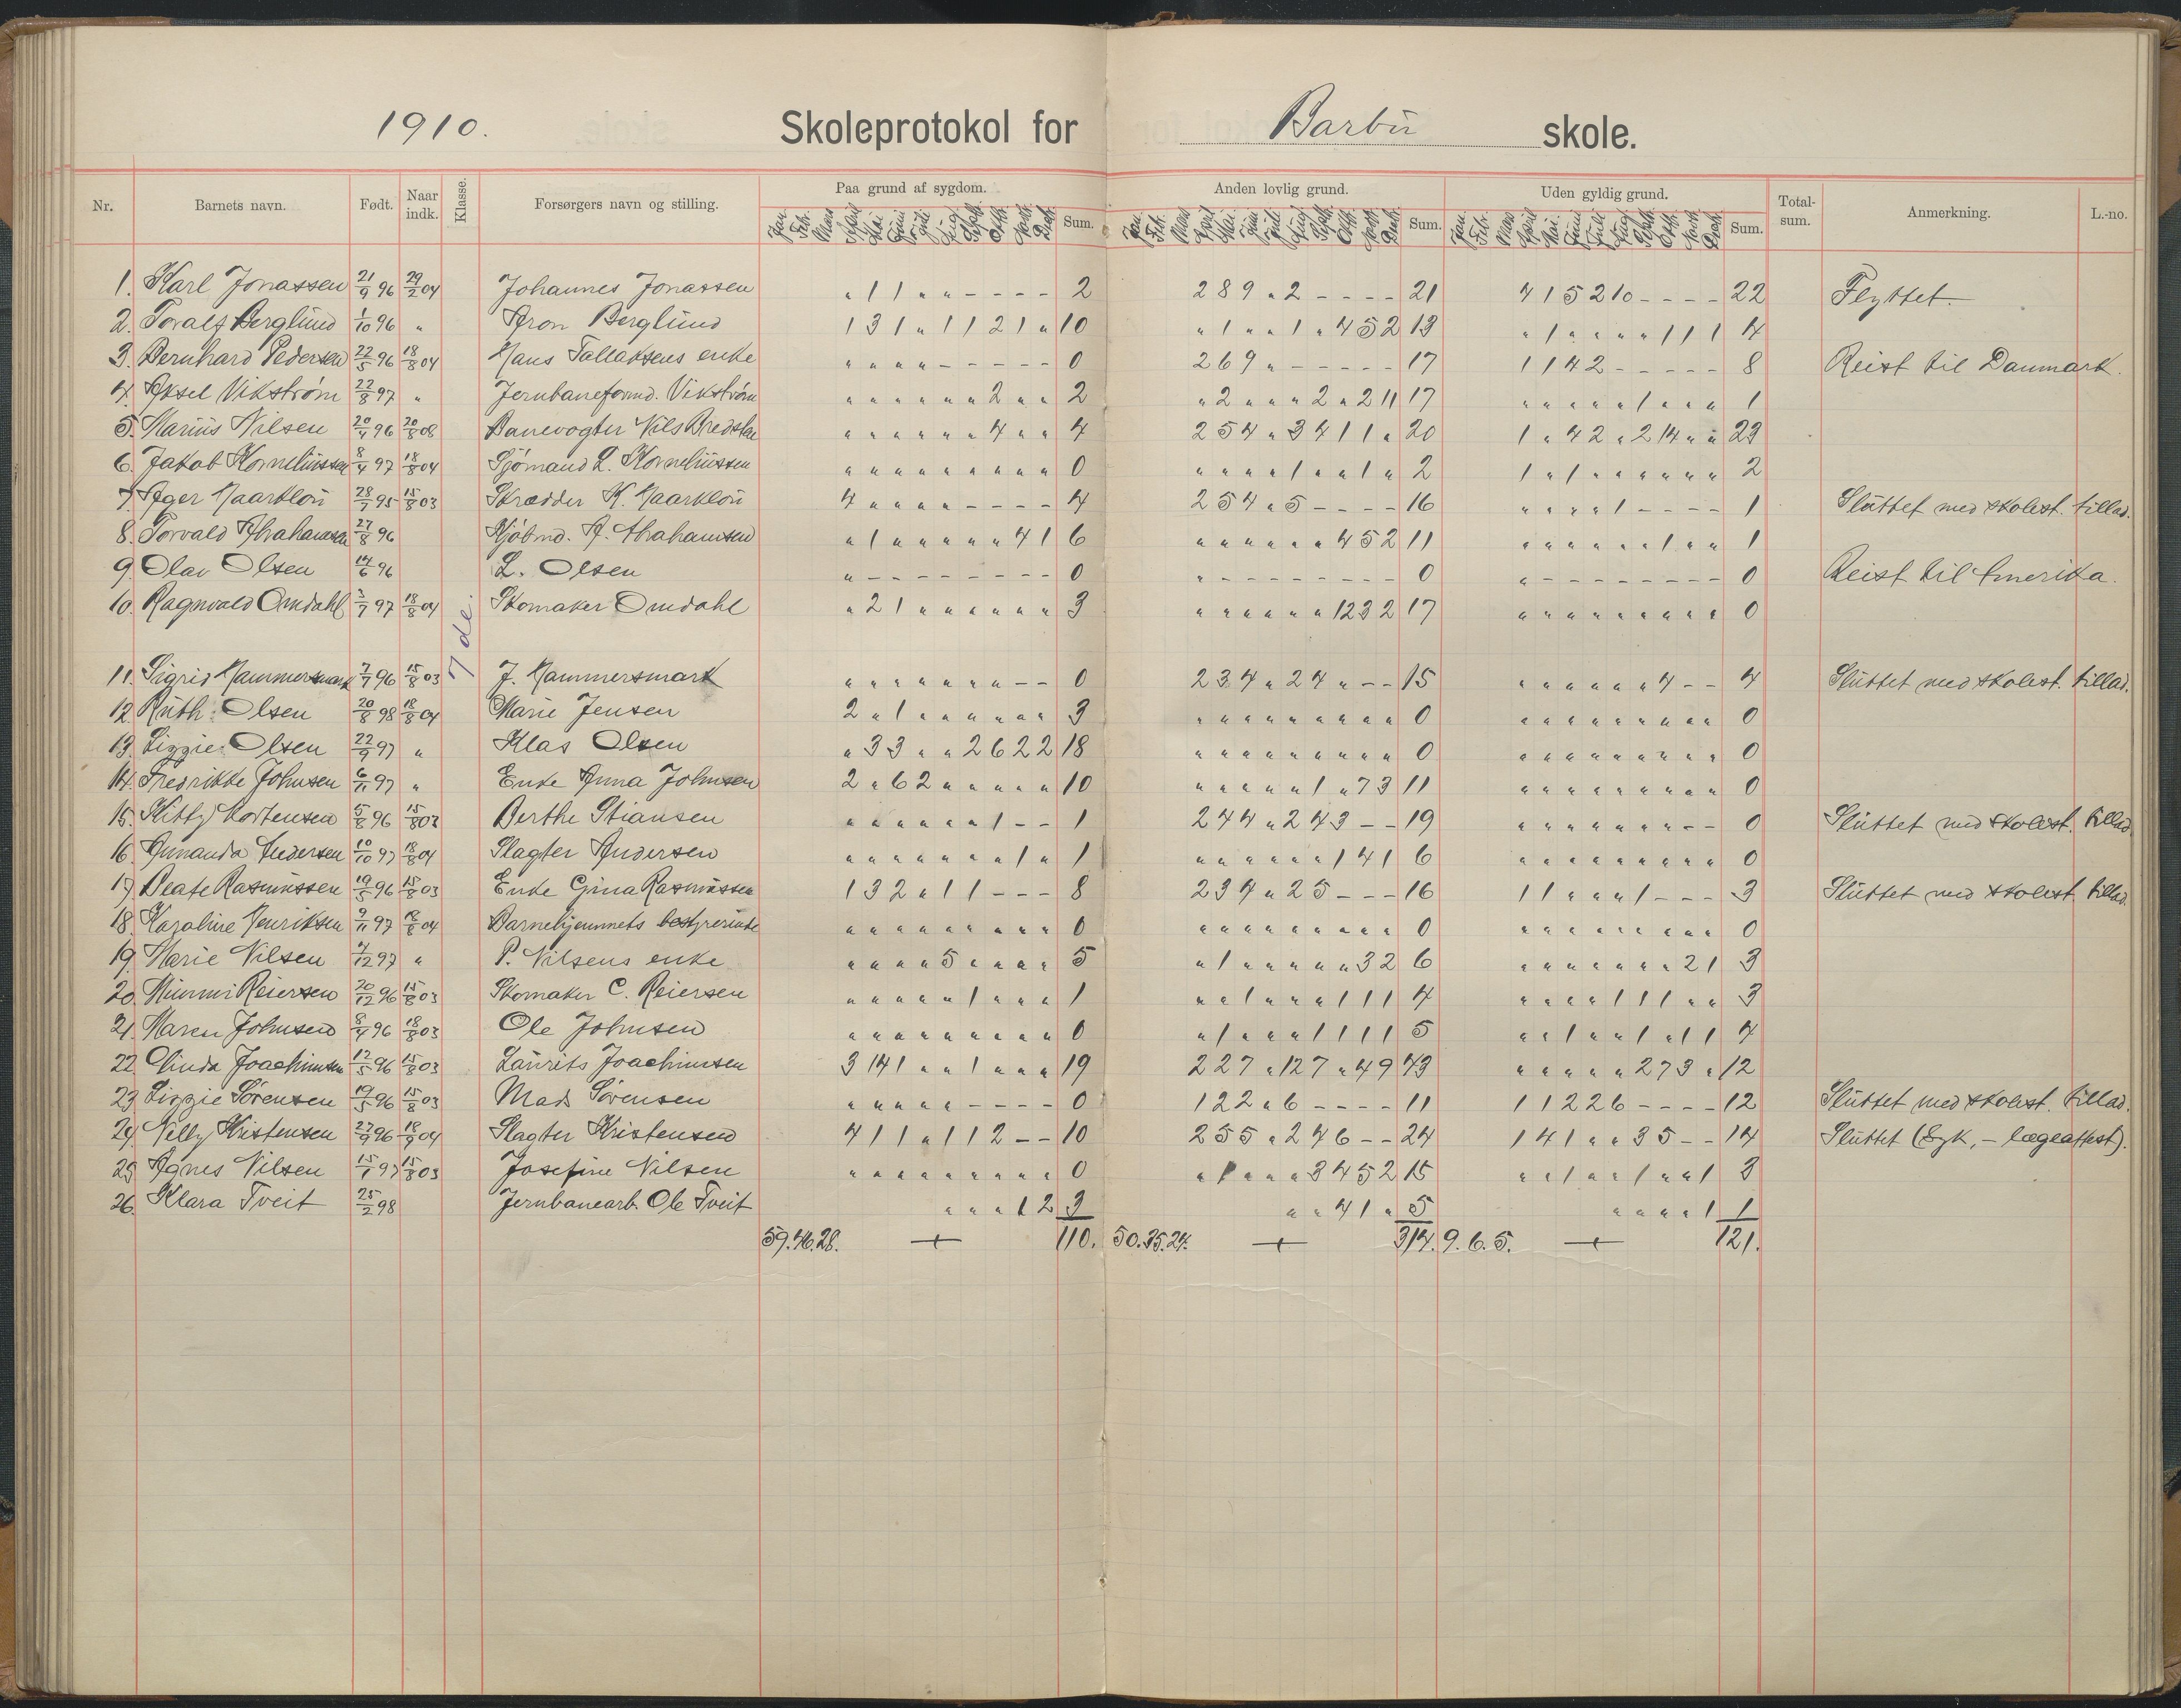 1910. Skoleprotokol for Barbu skole.
Nr. Barnets navn. Født. Naar indk. Klasse. Forsørgers navn og stilling. Paa grund af sygdom. Sum. Anden lovlig grund. Sum. Uden gyldig grund. Sum. Total-sum. Anmerkning. L.-no.
1. Karl Jonassen 21/9 96 29/2 04 Johannes Jonassen " 1 1 " " - - - - 2 2 8 9 " 2 - - - - 21 4 1 5 2 10 - - - - 22 Flyttet.
2. Toralf Berglund 1/10 96 " Aron Berglund 1 3 1 " 1 1 2 1 " 10 " 1 " " 1 " 4 5 2 13 " 1 " " " " 1 1 1 4
3. Bernhard Pedersen 22/5 96 18/8 04 Hans Tallaksens enke " " " " - - - - - 0 2 6 9 " - - - - - 17 1 1 4 2 - - - - - 8 Reist til Danmark.
4. Aksel Vikstrøm 22/8 97 " Jernbaneformd. Vikstrøm " " " " " " 2 " " 2 " 2 " " " 2 " 2 11 17 " " " " " 1 " " " 1
5. Marius Nilsen 20/4 96 20/8 08 Banevogter Nils Bredsten " " " " " " 4 " " 4 2 5 4 " 3 4 1 1 " 20 1 " 4 2 " 2 14 " " 23
6. Jakob Korneliussen 8/4 97 18/8 04 Sjömand L. Korneliussen " " " " " " " " " 0 " " " " 1 " " 1 " 2 1 " 1 " " " " " " 2
7. Ager Haarklou 28/7 95 15/8 03 Skrædder K. Haarklou 4 " " " " - - - - 4 2 5 4 " 5 - - - - 16 " " " " 1 - - - - 1 Sluttet med skolest. tillad.
8. Torvald Abrahamsen 27/8 96 Kjöbmd. A. Abrahamsen " 1 " " " " " 4 1 6 " " " " " " 4 5 2 11 " " " " " " 1 " " 1
9. Olav Olsen 14/6 96 L. Olsen " - - - - - - - - 0 " - - - - - - - - 0 " - - - - - - - - 0 Reist til Amerika.
10. Ragnvald Omdahl 3/7 97 18/8 04 Skomaker Omdahl " 2 1 " " " " " " 3 " " " " " " 12 3 2 17 " " " " " " " " " 0
7de.
11. Sigrid Hammersmark 7/7 96 15/8 03 J. Hammersmark " " " " " " " - - 0 2 3 4 " 2 4 " - - 15 " " " " " " 4 - - 4 Sluttet med skolest. tillad.
12. Ruth Olsen 20/8 98 18/8 04 Marie Jensen 2 " 1 " " " " " " 3 " " " " " " " " " 0 " " " " " " " " " 0
13. Lizzie Olsen 22/9 97 " Klas Olsen " 3 3 " " 2 6 2 2 18 " " " " " " " " " 0 " " " " " " " " " 0
14. Fredrikke Johnsen 6/11 97 " Enke Anna Johnsen 2 " 6 2 " " " " " 10 " " " " " 1 " 7 3 11 " " " " " " " " " 0
15. Kitty Mortensen 5/8 96 15/8 03 Berthe Stiansen " " " " " " 1 - - 1 2 4 4 " 2 4 3 - - 19 " " " " " " " - - 0 Sluttet med skolest. tillad.
16. Amanda Andersen 10/10 97 18/8 04 Slagter Andersen " " " " " " " 1 " 1 " " " " " " 1 4 1 6 " " " " " " " " " 0
17. Beate Rasmussen 19/5 96 15/8 03 Enke Gina Rasmussen 1 3 2 " 1 1 - - - 8 2 3 4 " 2 5 - - - 16 1 1 " " " 1 - - - 3 Sluttet med skolest. tillad.
18. Karoline Henriksen 9/11 97 18/8 04 Barnehjemmets bestyrerinde " " " " " " " " " 0 " " " " " " " " " 0 " " " " " " " " " 0
19. Marie Nilsen 4/12 97 " P. Nilsens enke " " " " 5 " " " " 5 " 1 " " " " " 3 2 6 " " " " " " " 2 1 3
20. Mimmi Reiersen 20/12 96 15/8 03 Skomaker C. Reiersen " " " " " 1 " " " 1 " " 1 " " " 1 1 1 4 " " " " 1 1 1 " " 3
21. Maren Johnsen 8/4 96 18/8 03 Ole Johnsen " " " " " " " " " 0 " 1 " " " 1 1 1 1 5 " " 1 " " 1 " 1 1 4
22. Linda Joachimsen 12/5 96 15/8 03 Laurits Joachimsen 3 14 1 " " 1 " " " 19 2 2 7 " 12 7 " 4 9 43 " " " " " 2 7 3 " 12
23. Lizzie Sörensen 19/5 96 15/8 03 Mads Sörensen " " " " " - - - - 0 1 2 2 " 6 - - - - 11 1 1 2 2 6 - - - - 12 Sluttet med skolest. tillad.
24. Nelly Kristensen 27/9 96 18/9 04 Slagter Kristensen 4 1 1 " 1 1 2 - - 10 2 5 5 " 2 4 6 - - 24 1 4 1 " " 3 5 - - 14 Sluttet (syk, - lægeattest).
25. Agnes Nilsen 15/1 97 15/8 03 Josefine Nilsen " " " " " " " " " 0 " 1 " " " 3 4 5 2 15 " " 1 " " 1 " " 1 3
26. Klara Tveit 25/2 98 Jernbanearb. Ole Tveit " " " 1 2 3 " " 4 1 " 5 " " " " 1 1
59.46.28. + 110. 50.35.24. + 314. 9.6.5. + 121.